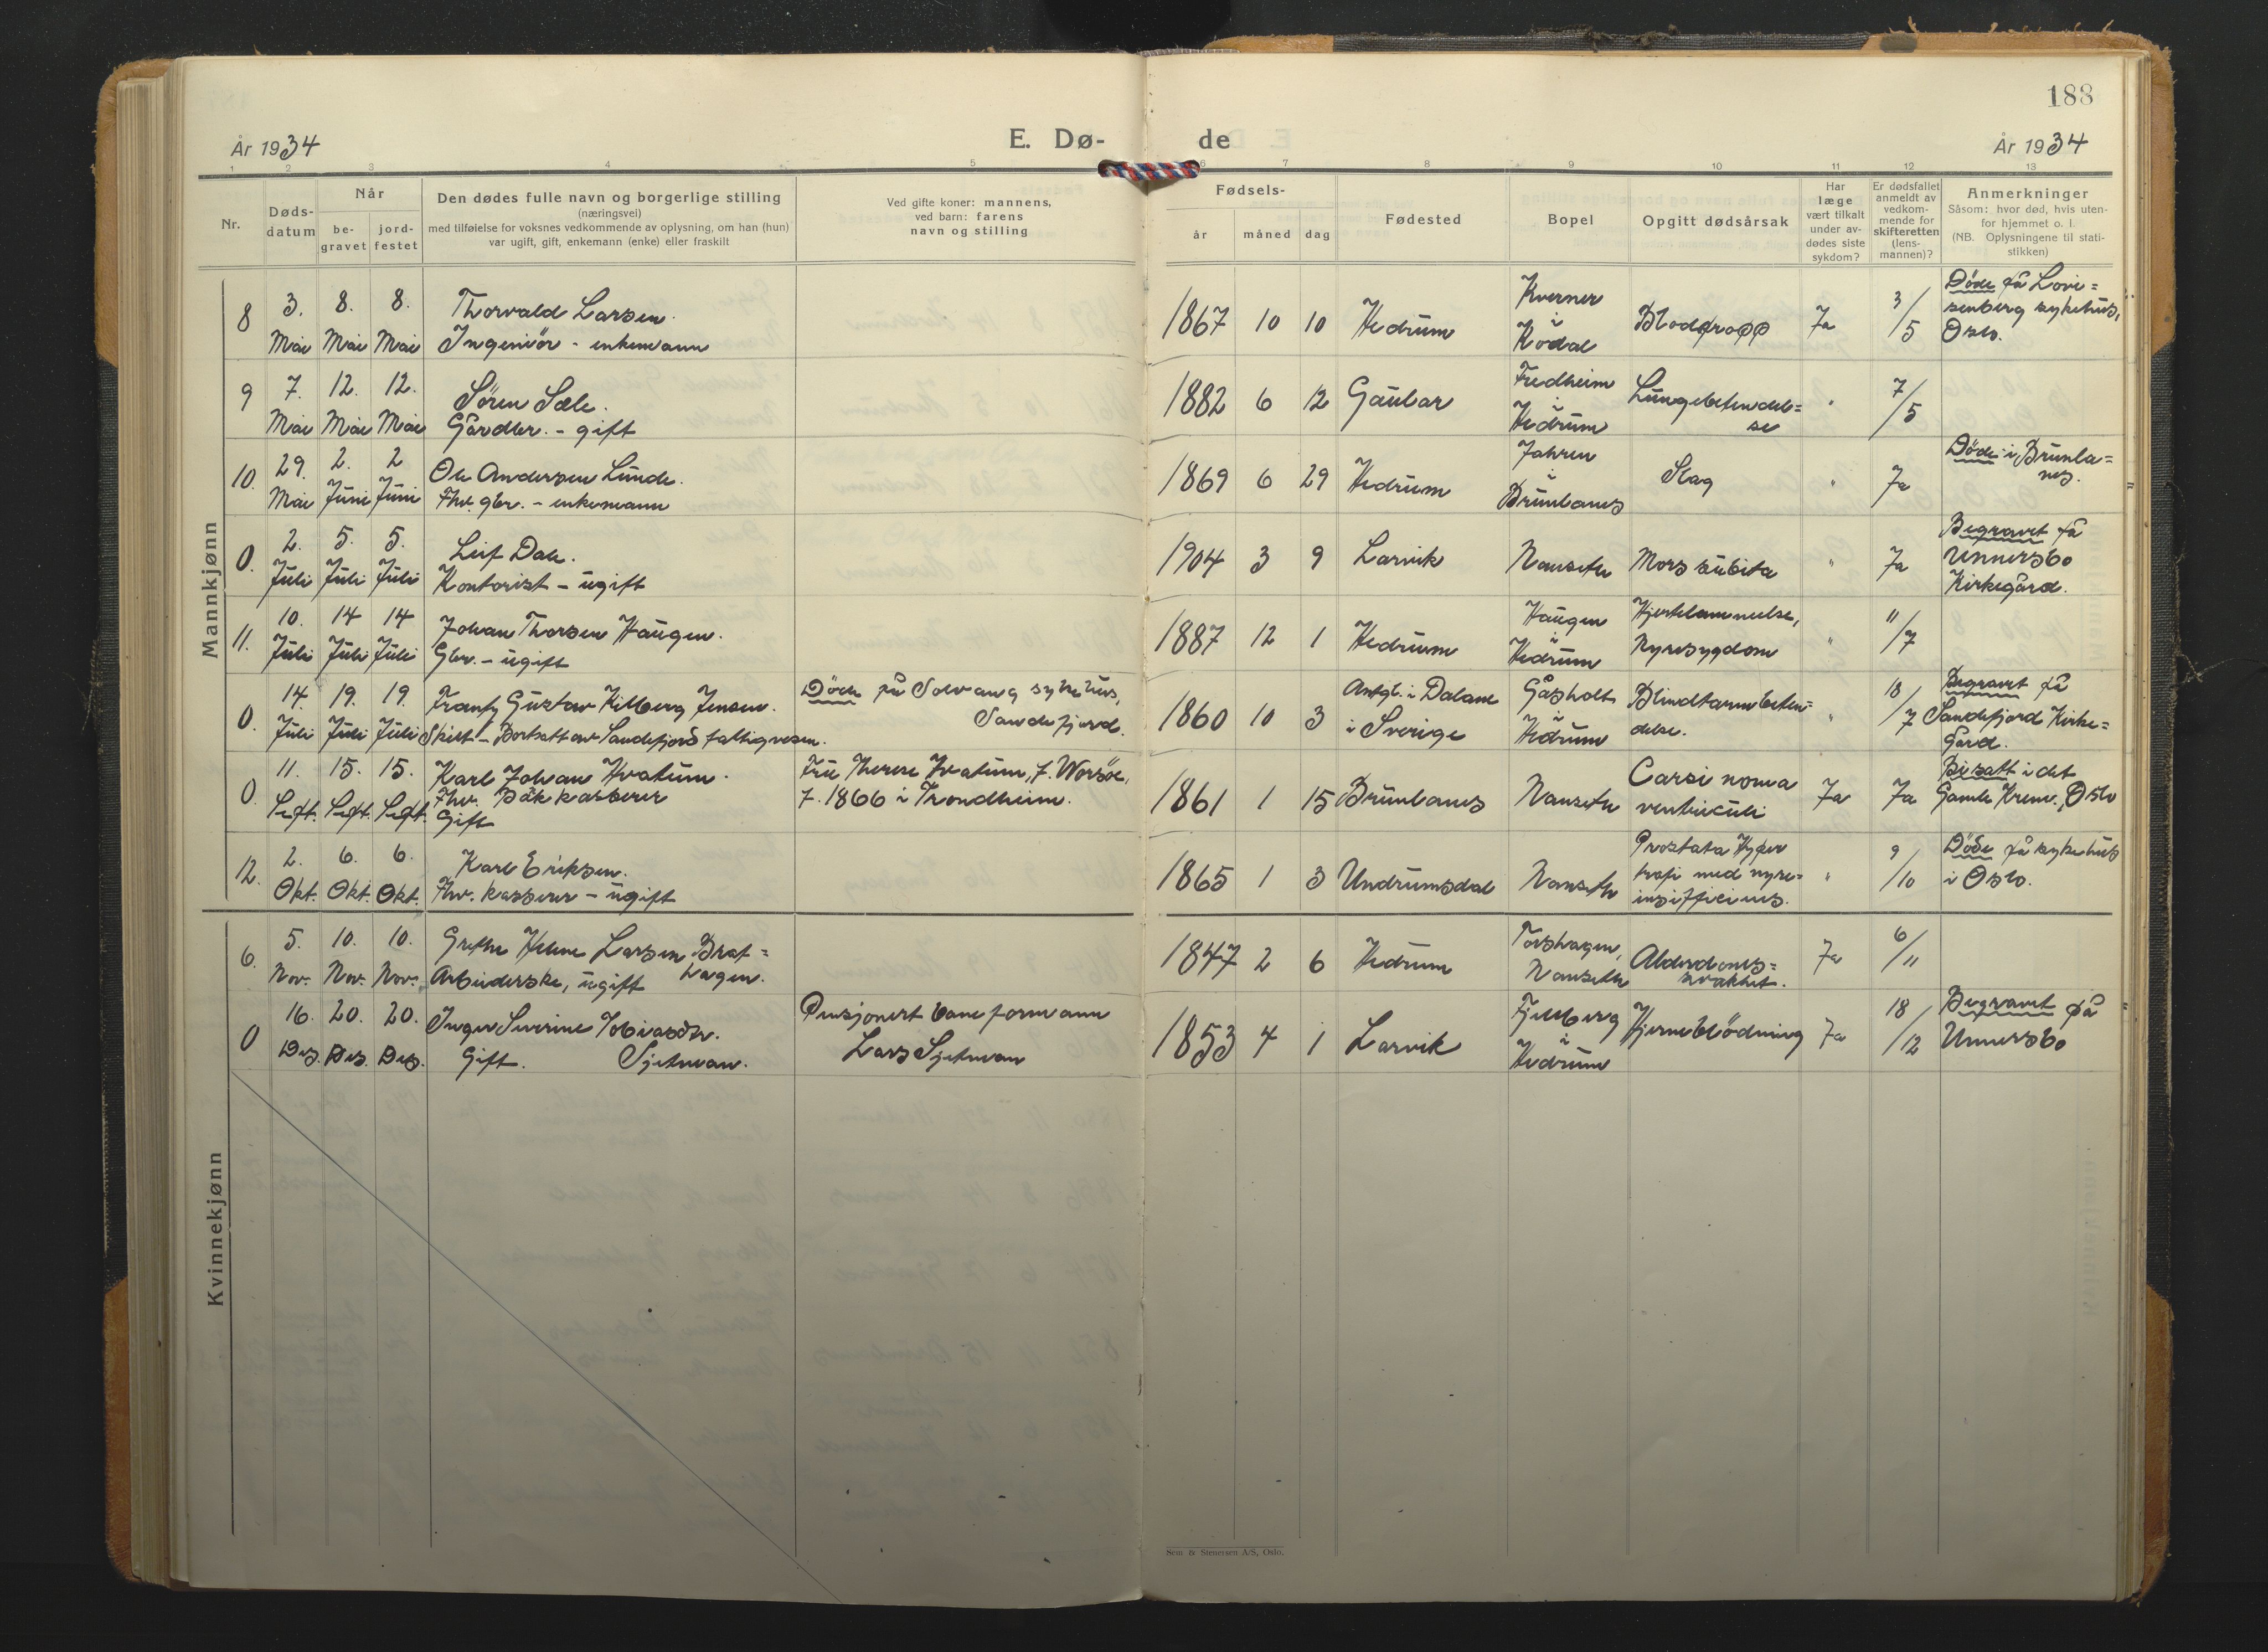 188
År 1934
E. Dø-
de
År 1934
1 2 3 4 5 6 7 8 9 10 11 12 13
Nr.
Døds-
datum
Når
be-
gravet
jord-
festet
Den dødes fulle navn og borgerlige stilling
(næringsvei)
med tilføielse for voksnes vedkommende av oplysning, om han (hun)
var ugift, gift, enkemann (enke) eller fraskilt
Ved gifte koner: mannens,
ved barn: farens
navn og stilling
Fødsels-
år
måned
dag
Fødested
Bopel
Opgitt dødsårsak
Har
læge
vært tilkalt
under av-
dødes siste
sykdom?
Er dødsfallet
anmeldt av
vedkom-
mende for
skifteretten
(lens-
mannen)?
Anmerkninger
Såsom: hvor død, hvis uten-
for hjemmet o. l.
(NB. Oplysningene til stati-
stikken)
Mannkjønn
8
3.
Mai
8.
Mai
8.
Mai
Thorvald Larsen.
Ingeniör - enkemann
1867 10 10
Hedrum
Kverner
i
Kodal
Blodpropp
Ja
3/5
Döde på Lovi=
senberg sykehus,
Oslo.
9
7.
Mai
12.
Mai
12.
Mai
Sören Sæle.
Gårdbr. - gift
1882 6 12
Gaular
Fredheim
i
Hedrum
Lungebetendel=
se
"
7/5
10.
29.
Mai
2.
Juni
2
Juni
Ole Andersen Lunde.
Fhv. gbr. - enkemann
1869 6 29
Hedrum
Jahren
i
Brunlanes
Slag
"
Ja
Döde i Brunla=
nes.
0.
2.
Juli
5.
Juli
5.
Juli
Leif Dale.
Kontorist - ugift
1904 3 9
Larvik
Nanseth
Mors subita
"
Ja
Begravet på
Unnersbo
Kirkegård.
11.
10.
Juli
14
Juli
14
Juli
Johan Thorsen Haugen.
Gbr. - ugift
1887 12 1
Hedrum
Haugen
i
Hedrum
Hjertelammelse,
Nyresygdom
"
11/7
0.
14.
Juli
19.
Juli
19.
Juli
Frantz Gustav Kilberg Jensen.
Skilt - Bortsatt av Sandefjord fattigvesen.
Döde på Solvang sykehus,
Sandefjord.
1860 10 3
Antgl. i Dalane
i Sverige
Gåsholt
i
Hedrum
Blindtarmbeten=
delse.
"
18/7
Begravet på
Sandefjord Kirke=
gård.
0.
11.
Sept.
15.
Sept.
15.
Sept.
Karl Johan Hvatum.
Fhv.
Gift
Fru Therese Hvatum, f. Worsöe,
f. 1866 i Trondheim.
1861 1 15
Brunlanes
Nanseth
Carsinoma
ventriculi
Ja
Ja
Bisatt i det
Gamle Krem., Oslo
12.
2.
Okt.
6.
Okt.
6.
Okt.
Karl Eriksen.
Fhv. kasserer - ugift
1865 1 3
Undrumsdal
Nanseth
Prostata Hyper
trofi med nyre=
insifficiens.
"
9/10
Döde på sykehus
i Oslo.
Kvinnekjønn
6.
5.
Nov.
10.
Nov.
10.
Nov.
Grethe Helene Larsen Brat=
Arbeiderske, ugift hagen.
1847 2 6
Hedrum
Torshagen,
Nanseth
Alderdoms=
svakhet.
Ja
6/11
0
16.
Des.
20.
Des.
20.
Des.
Inger Severine Tobiasdtr.
Gift. Sjetman.
Pensjonert baneformann
Lars Sjetman
1853 4 1
Larvik
Fjellberg
i
Hedrum
Hjerneblödning
Ja
18/12
Begravet på
Unnersbo
Sem & Stenersen A/S, Oslo.